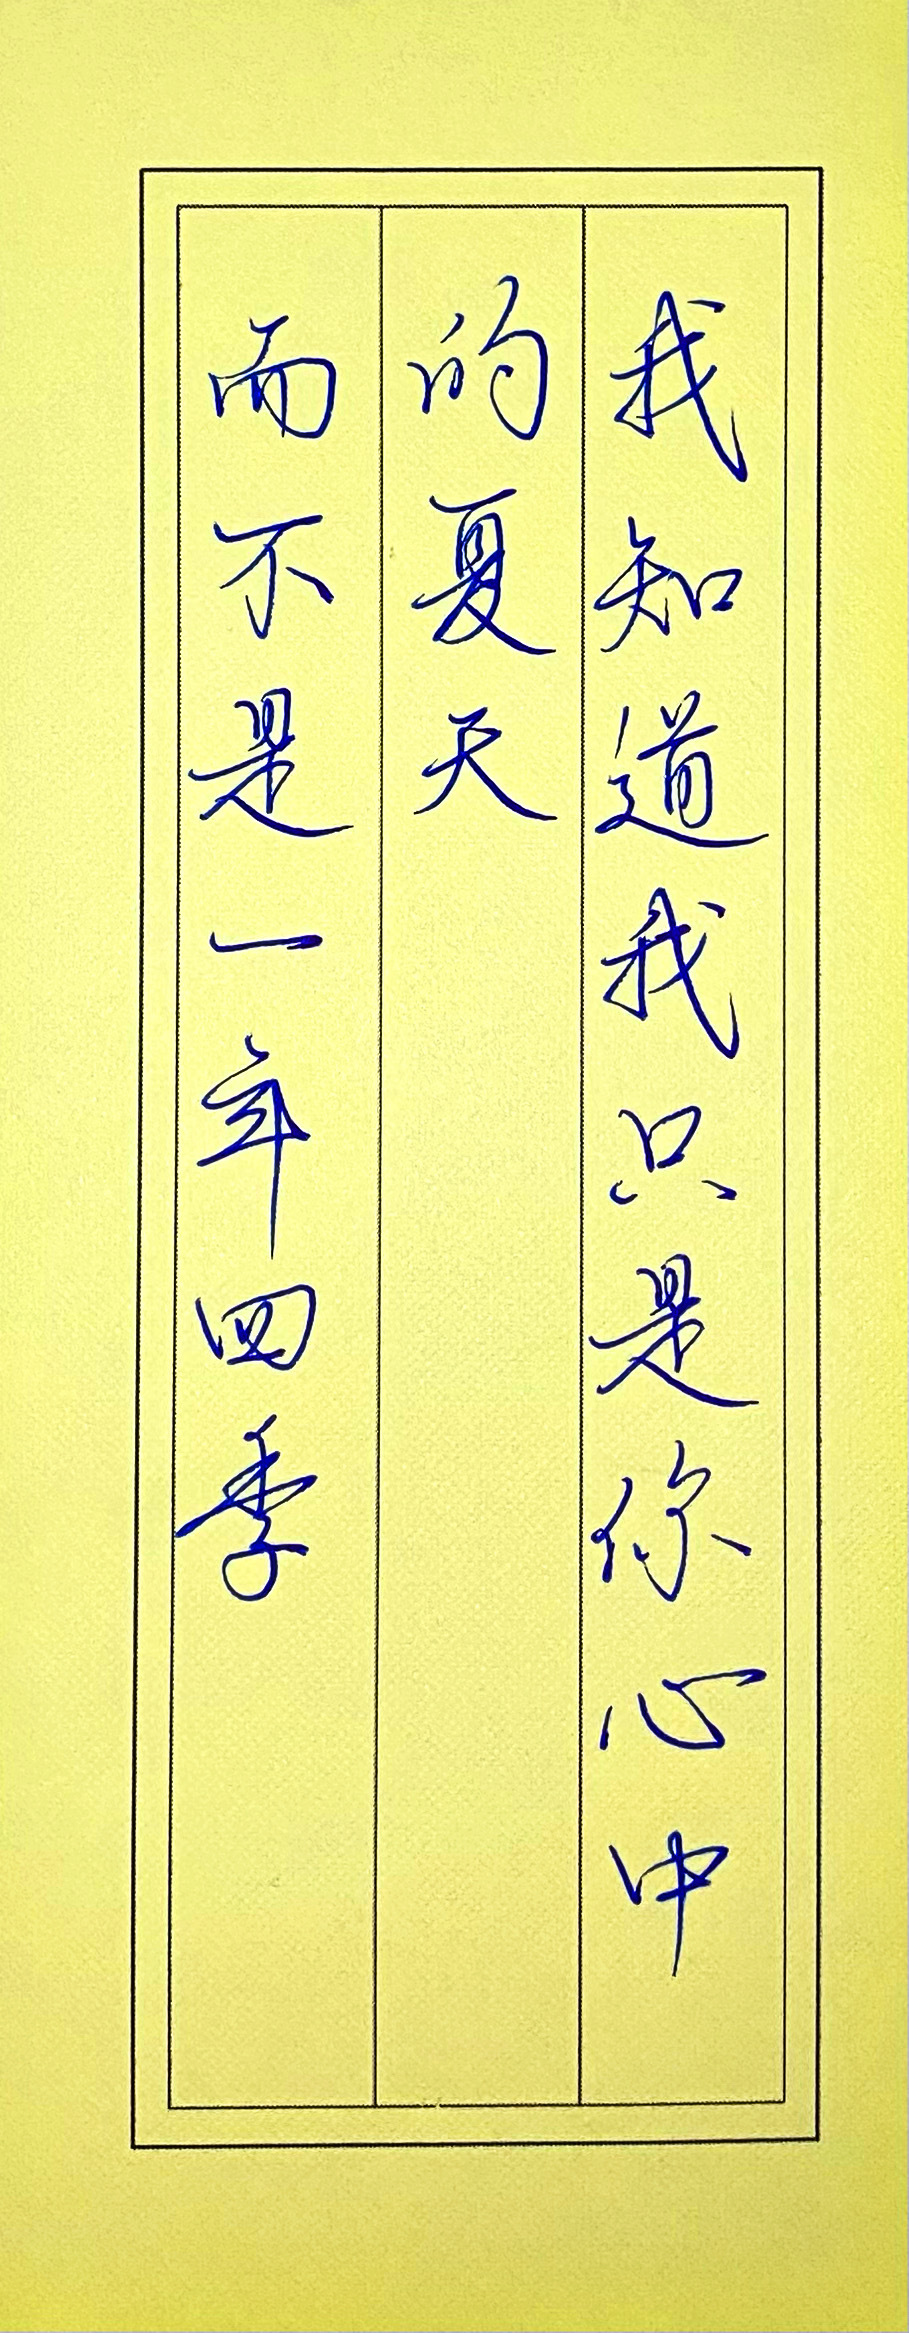 我知道我只是你心中
的夏天
而不是一年四季